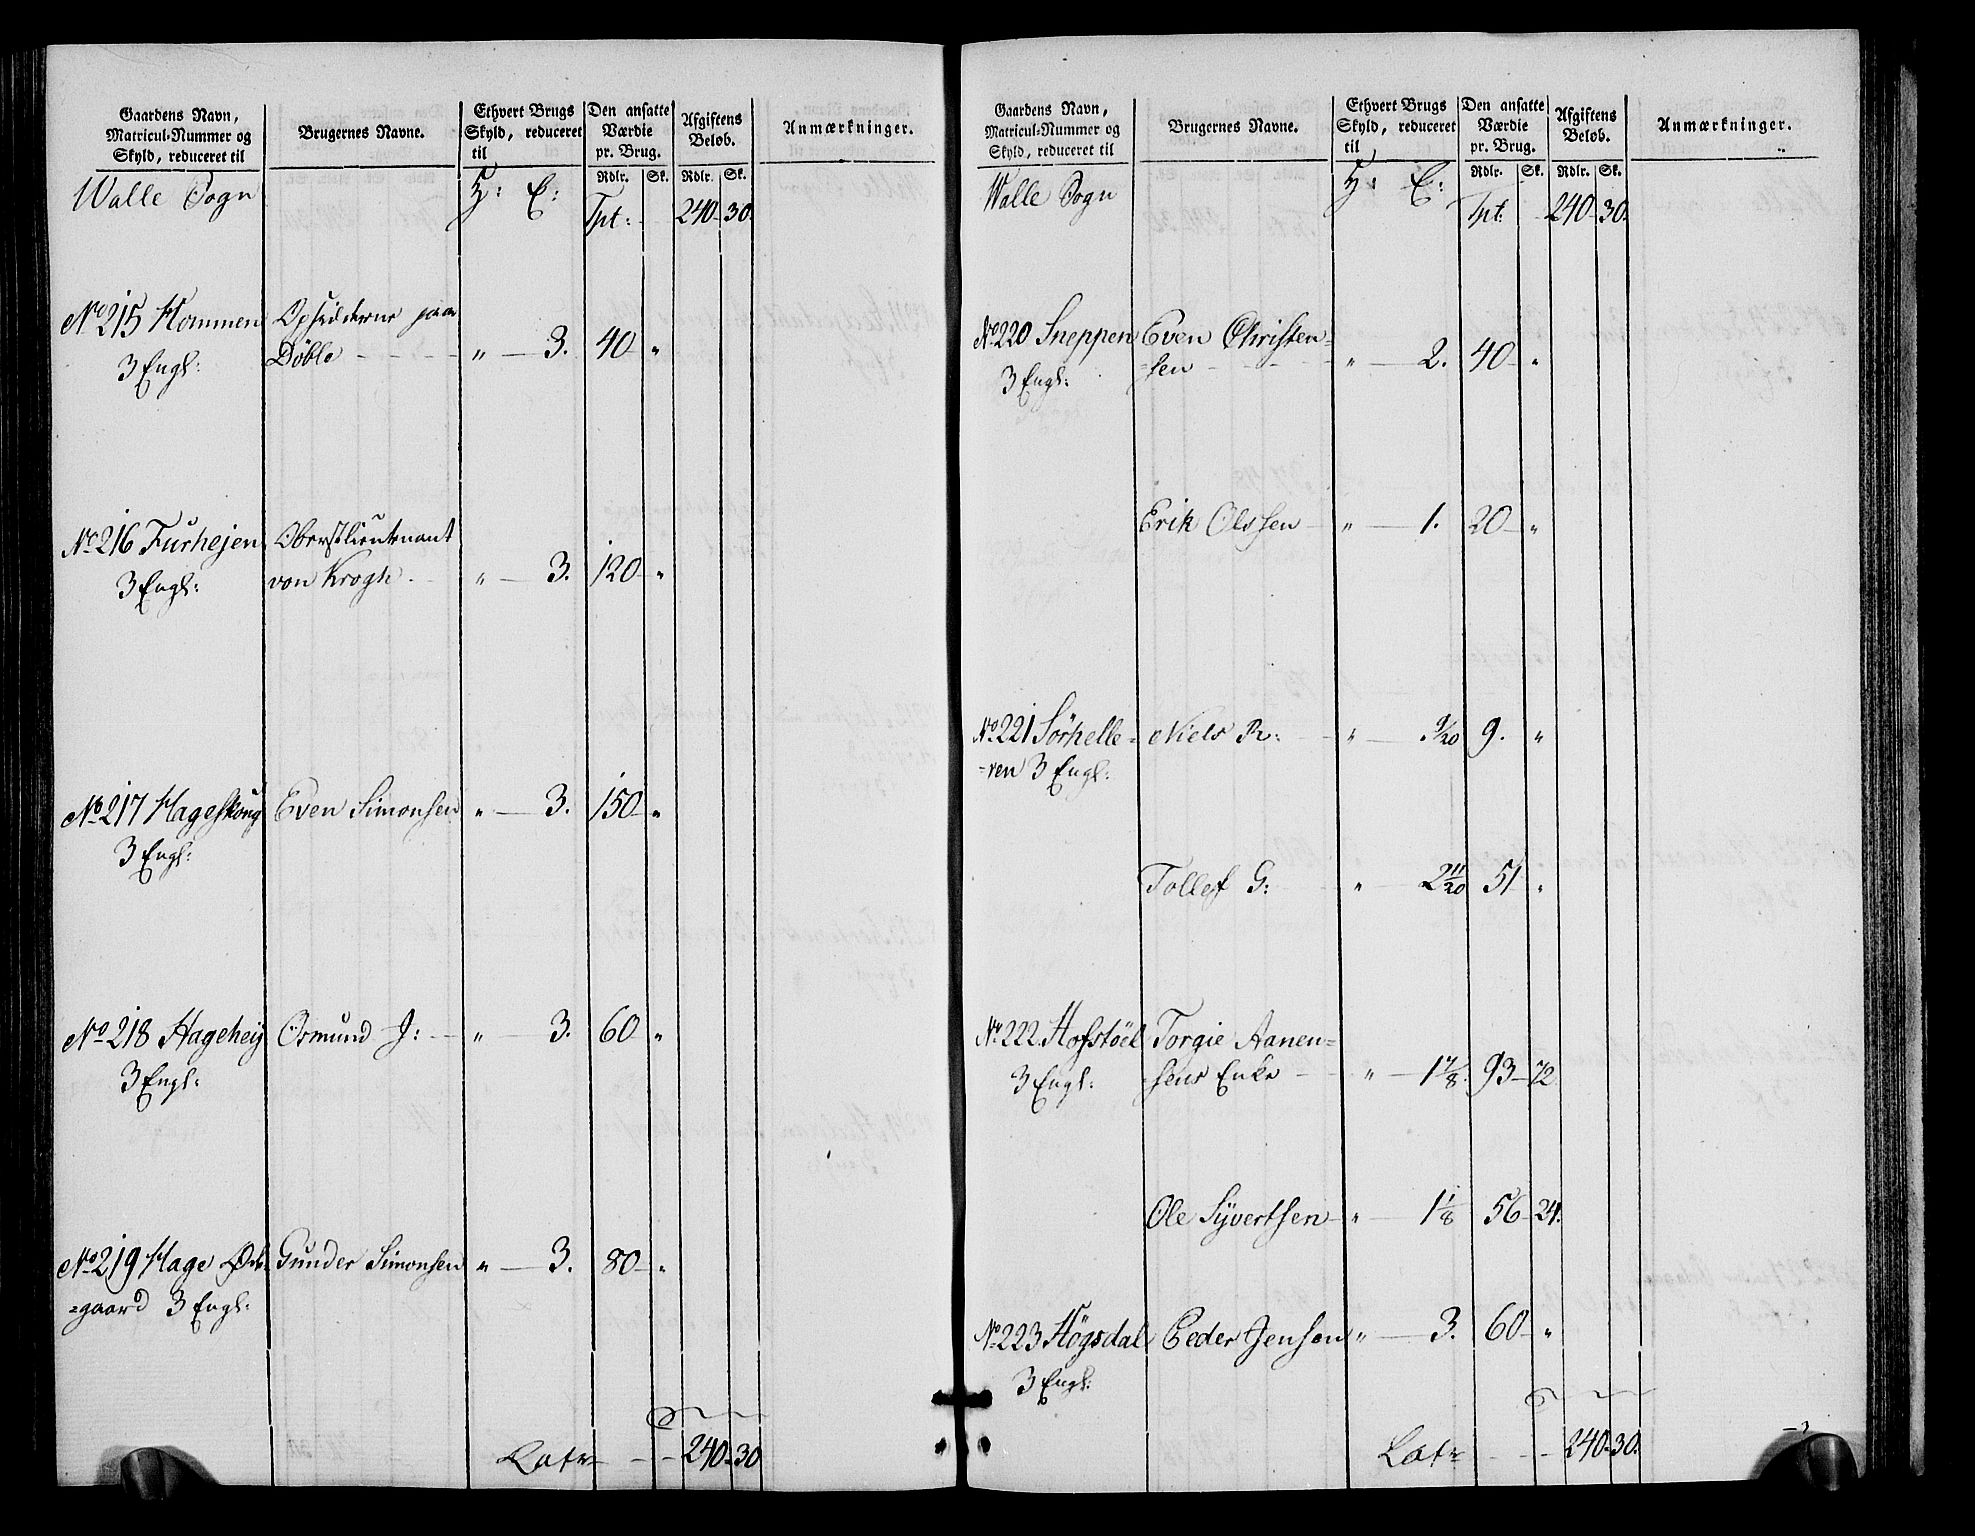 Gaardens Navn,
Matricul-Nummer og
Skyld, reduceret til
Brugernes Navne.
Ethvert Brugs
Skyld, reduceret
til
Den ansatte
Værdie
pr. Brug.
Afgiftens
Beløb.
Anmærkninger.
Rdlr. Sk. Rdlr. Sk.
Walle Sogn H: E: Tpt: 240 30.
No 215 Hommen Opsidderne paa
3 Engl: Døble " 3. 40 "
No 216 Furhejen Oberstlieutenant
3 Engl: von Krogh " 3. 120 "
No 217 Hageskoug Even Simonsen " 3. 150 "
3 Engl:
No 218 Hageheij Osmund J: " 3. 60 "
3 Engl:
No 219 Hage Øde= Gunder Simonsen " 3. 80 "
=gaard 3 Engl:
Latr 240 30
Gaardens Navn,
Matricul-Nummer og
Skyld, reduceret til
Brugernes Navne.
Ethvert Brugs
Skyld, reduceret
til
Den ansatte
Værdie
pr. Brug.
Afgiftens
Beløb.
Anmærkninger.
Rdlr. Sk. Rdlr. Sk.
Walle Sogn H: E: Tpt: 240 30.
No 220 Sneppen Even Christen=
3 Engl: =sen " 2. 40 "
Erik Olssen " 1. 20 "
No 221 Sørhelle= Niels R: " 9/20 9. "
=ren 3 Engl:
Tollef G: " 2 11/20 51 "
No 222. Hofstöel Torgie Aanen=
3 Engl: =sens Enke " 1 7/8. 93 72
Ole Sÿvertsen " 1 1/8 56 24.
No 223 Högsdal Peder Jensen " 3. 60 "
3 Engl:
Latr 240 30.